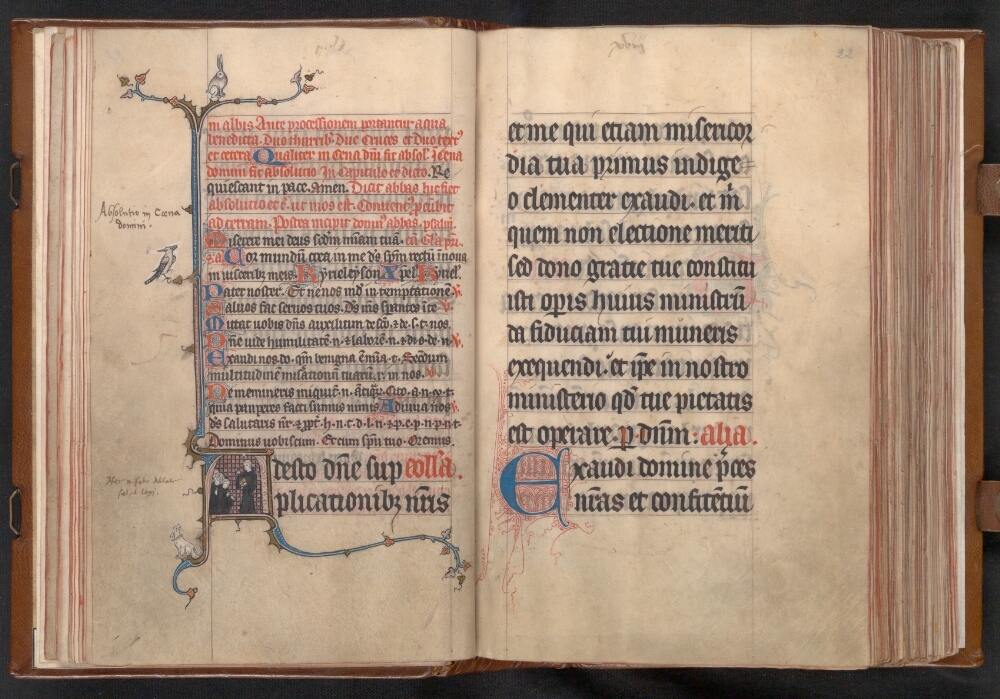 in albis Ante processionem portantur aqua
benedicta. Duo thurrib' Due Cruces et Duo text'
et cetera Qualiter in Cena dñi fit absol' I cena
domini fit absolutio In Capitulo eo dicto. Re
quiescant in pace. Amen. Dicat abbas hic fiet
absolutio et ut mos est.
ad terram. Postea incipit domn' abbas. psalm.
Absolutio in Cœna
domini.
Miserere mei deus scdm mãam tuã. cũ Gla pri.
Cor mundũ crea in me ds spm rectũ inoua
in uisceribꝫ meis. Kyrieleyson Xpel. Kyriel.
Pater noster. Et ne nos ind' in temptationẽ. V.
Saluos fac seruos tuos. Ds ms spantes i te. V.
Mittat uobis dñs auxilium de sco. ⁊ de. s. t. nos.
Dñe uide humilitatẽ. n. ⁊ laborẽ. n. ⁊ di. o. de. n. V.
Exaudi nos do. qm benigna ẽ mia. t. Secdum
multitudinẽ misationũ tuarũ. r. in nos. V.
Ne memineris iniquit'. n. ãtiq'r. Cito. a. n. o. t.
quia pauperes facti sumus nimis. Adiuua nos V.
ds salutaris nr. ⁊ ppt'. h. n. t. d. l. n. ⁊ p. e. p. n. p. n. t.
Dominus uobiscum. Et cum spũ tuo. Oremus.
Adesto dñe sup colla.
plicationibꝫ nr̃is
22
et me qui etiam misericor
dia tua primus indige
o clementer exaudi. et m̃
quem non electione meriti
sed dono gratie tue constitu
isti opis huius ministrũ
da fiduciam tui muneris
exequendi. et ip̃e in nostro
ministerio qd̃ tue pietatis
est operare. p dñm. alia.
Exaudi domine p̃ces
nr̃as et confitẽtiũ